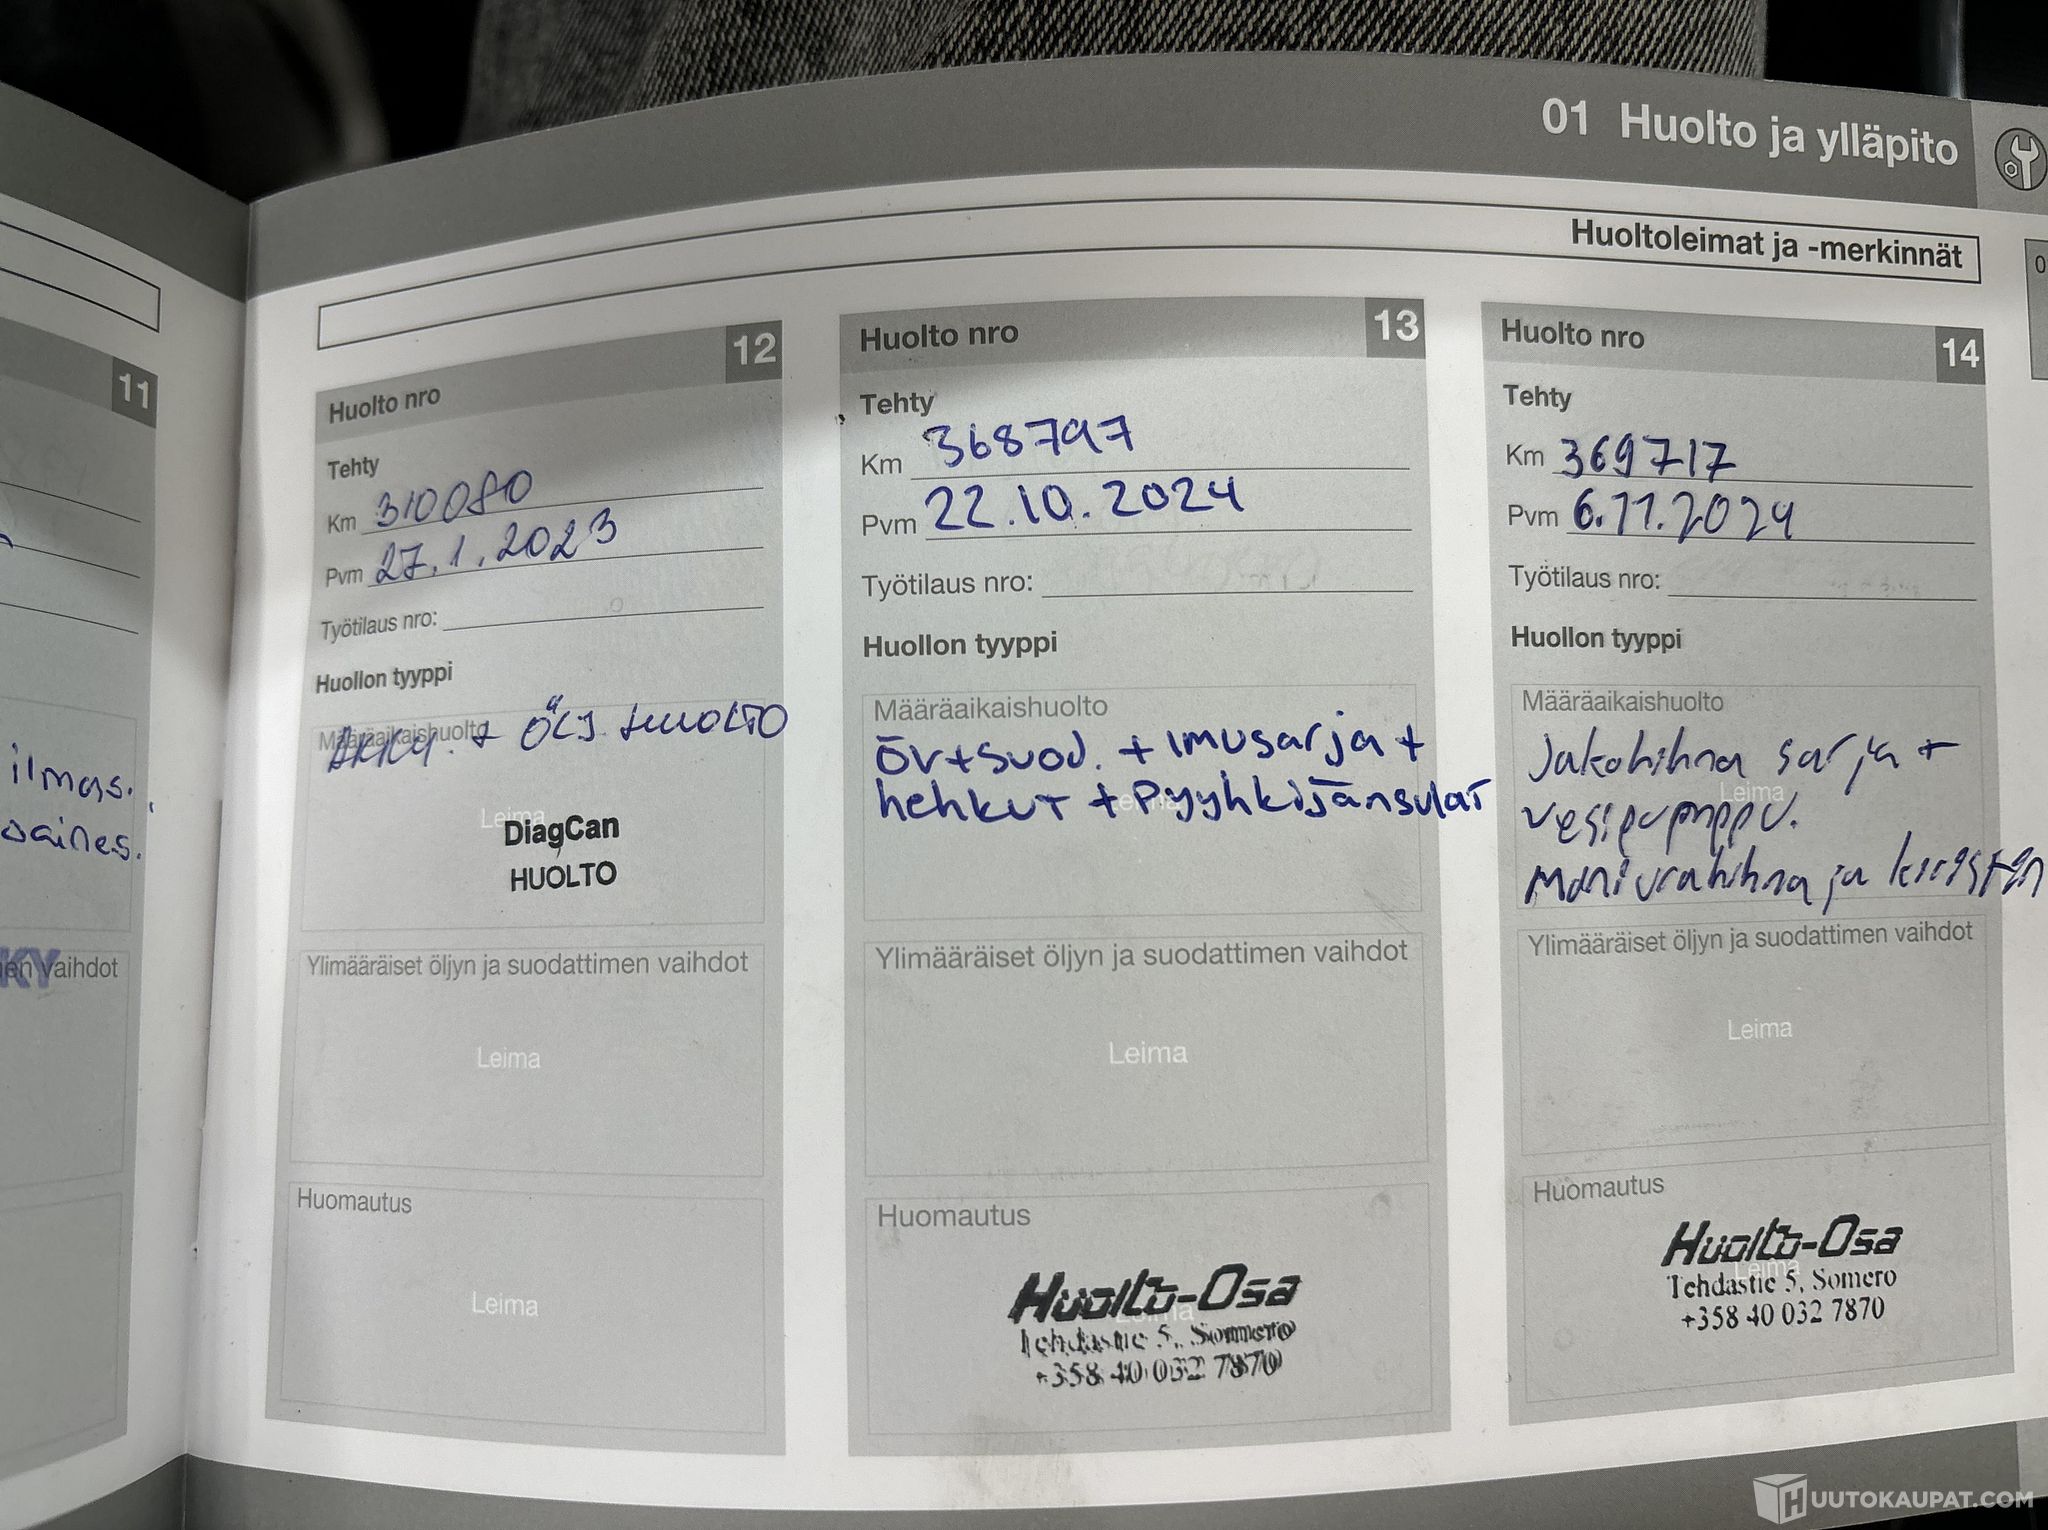 01 Huolto ja ylläpito
Huoltoleimat ja -merkinnät
0
11
ilmas.
aines.
KY
en vaihdot
12
Huolto nro
Tehty
Km 310080
Pvm 27.1.2023
Työtilaus nro:
Huollon tyyppi
Määräaikaishuolto
AKKU + ÖLJ HUOLTO
Leima
DiagCan
HUOLTO
Ylimääräiset öljyn ja suodattimen vaihdot
Leima
Huomautus
Leima
13
Huolto nro
Tehty
Km 368797
Pvm 22.10.2024
Työtilaus nro:
Huollon tyyppi
Määräaikaishuolto
öv+suod. + imusarja +
hehkut + Pyyhkijänsulat
Leima
Ylimääräiset öljyn ja suodattimen vaihdot
Leima
Huomautus
Leima
Huolto-Osa
Tehdastie 5, Somero
+358 40 032 7870
14
Huolto nro
Tehty
Km 369717
Pvm 6.11.2024
Työtilaus nro:
Huollon tyyppi
Määräaikaishuolto
Jakohihna sarja +
Leima
vesipumppu.
moniurahihna ja kiristin
Ylimääräiset öljyn ja suodattimen vaihdot
Leima
Huomautus
Leima
Huolto-Osa
Tehdastie 5, Somero
+358 40 032 7870
HUUTOKAUPAT.COM